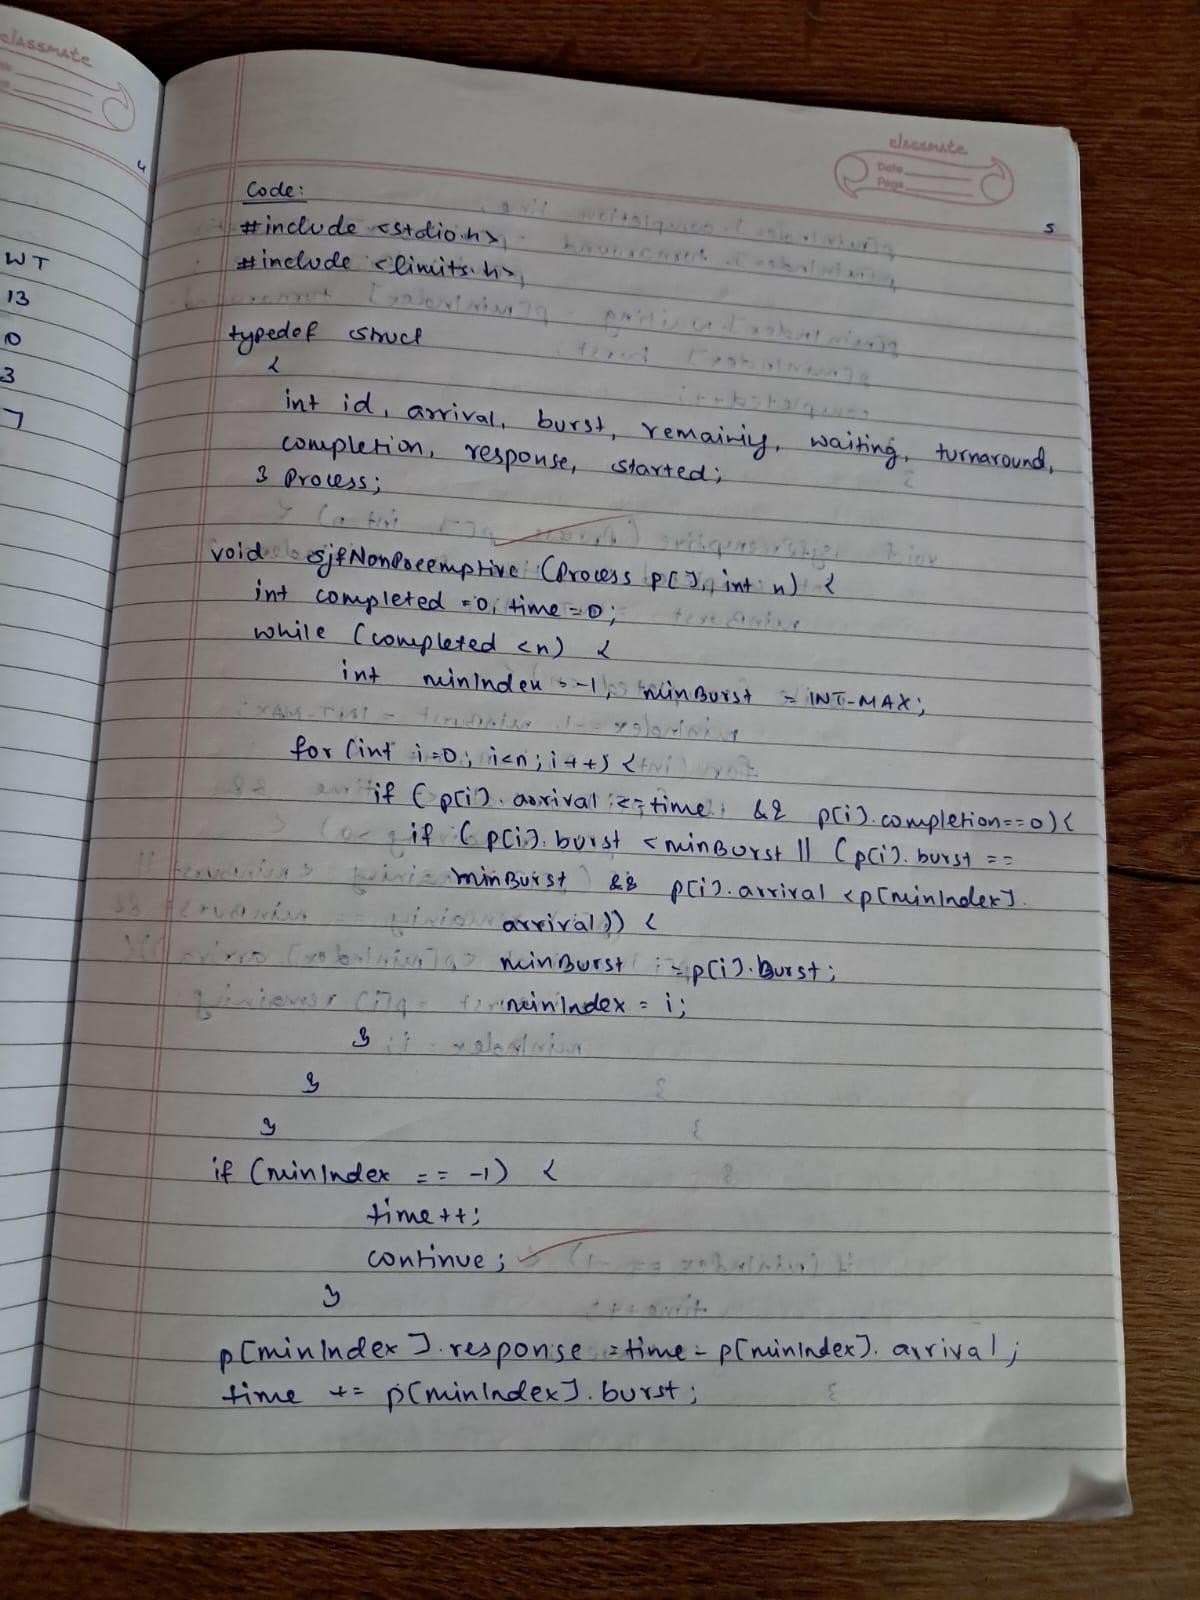 classmate
4
WT
13
0
3
7
classmate
Date
Page
5
Code:
#include <stdio.h>
#include <limits.h>
typedef struct
{
int id, arrival, burst, remainiy, waiting, turnaround,
completion, response, started;
} Process;
void sjfNonPreemptive (Process p[], int n) {
int completed =0, time=0;
while (completed <n) {
int minIndex = -1, minBurst = INT-MAX;
for (int i=0; i<n; i++) {
if (p[i]. arrival <= time && p[i].completion==0) {
if (p[i]. burst <minBurst || (p[i]. burst ==
minBurst && p[i].arrival <p[minIndex].
arrival)) {
minBurst = p[i].Burst;
minIndex = i;
}
}
}
if (minIndex == -1) {
time++;
continue;
}
p[minIndex].response =time- p[minIndex]. arrival;
time += p[minIndex]. burst;